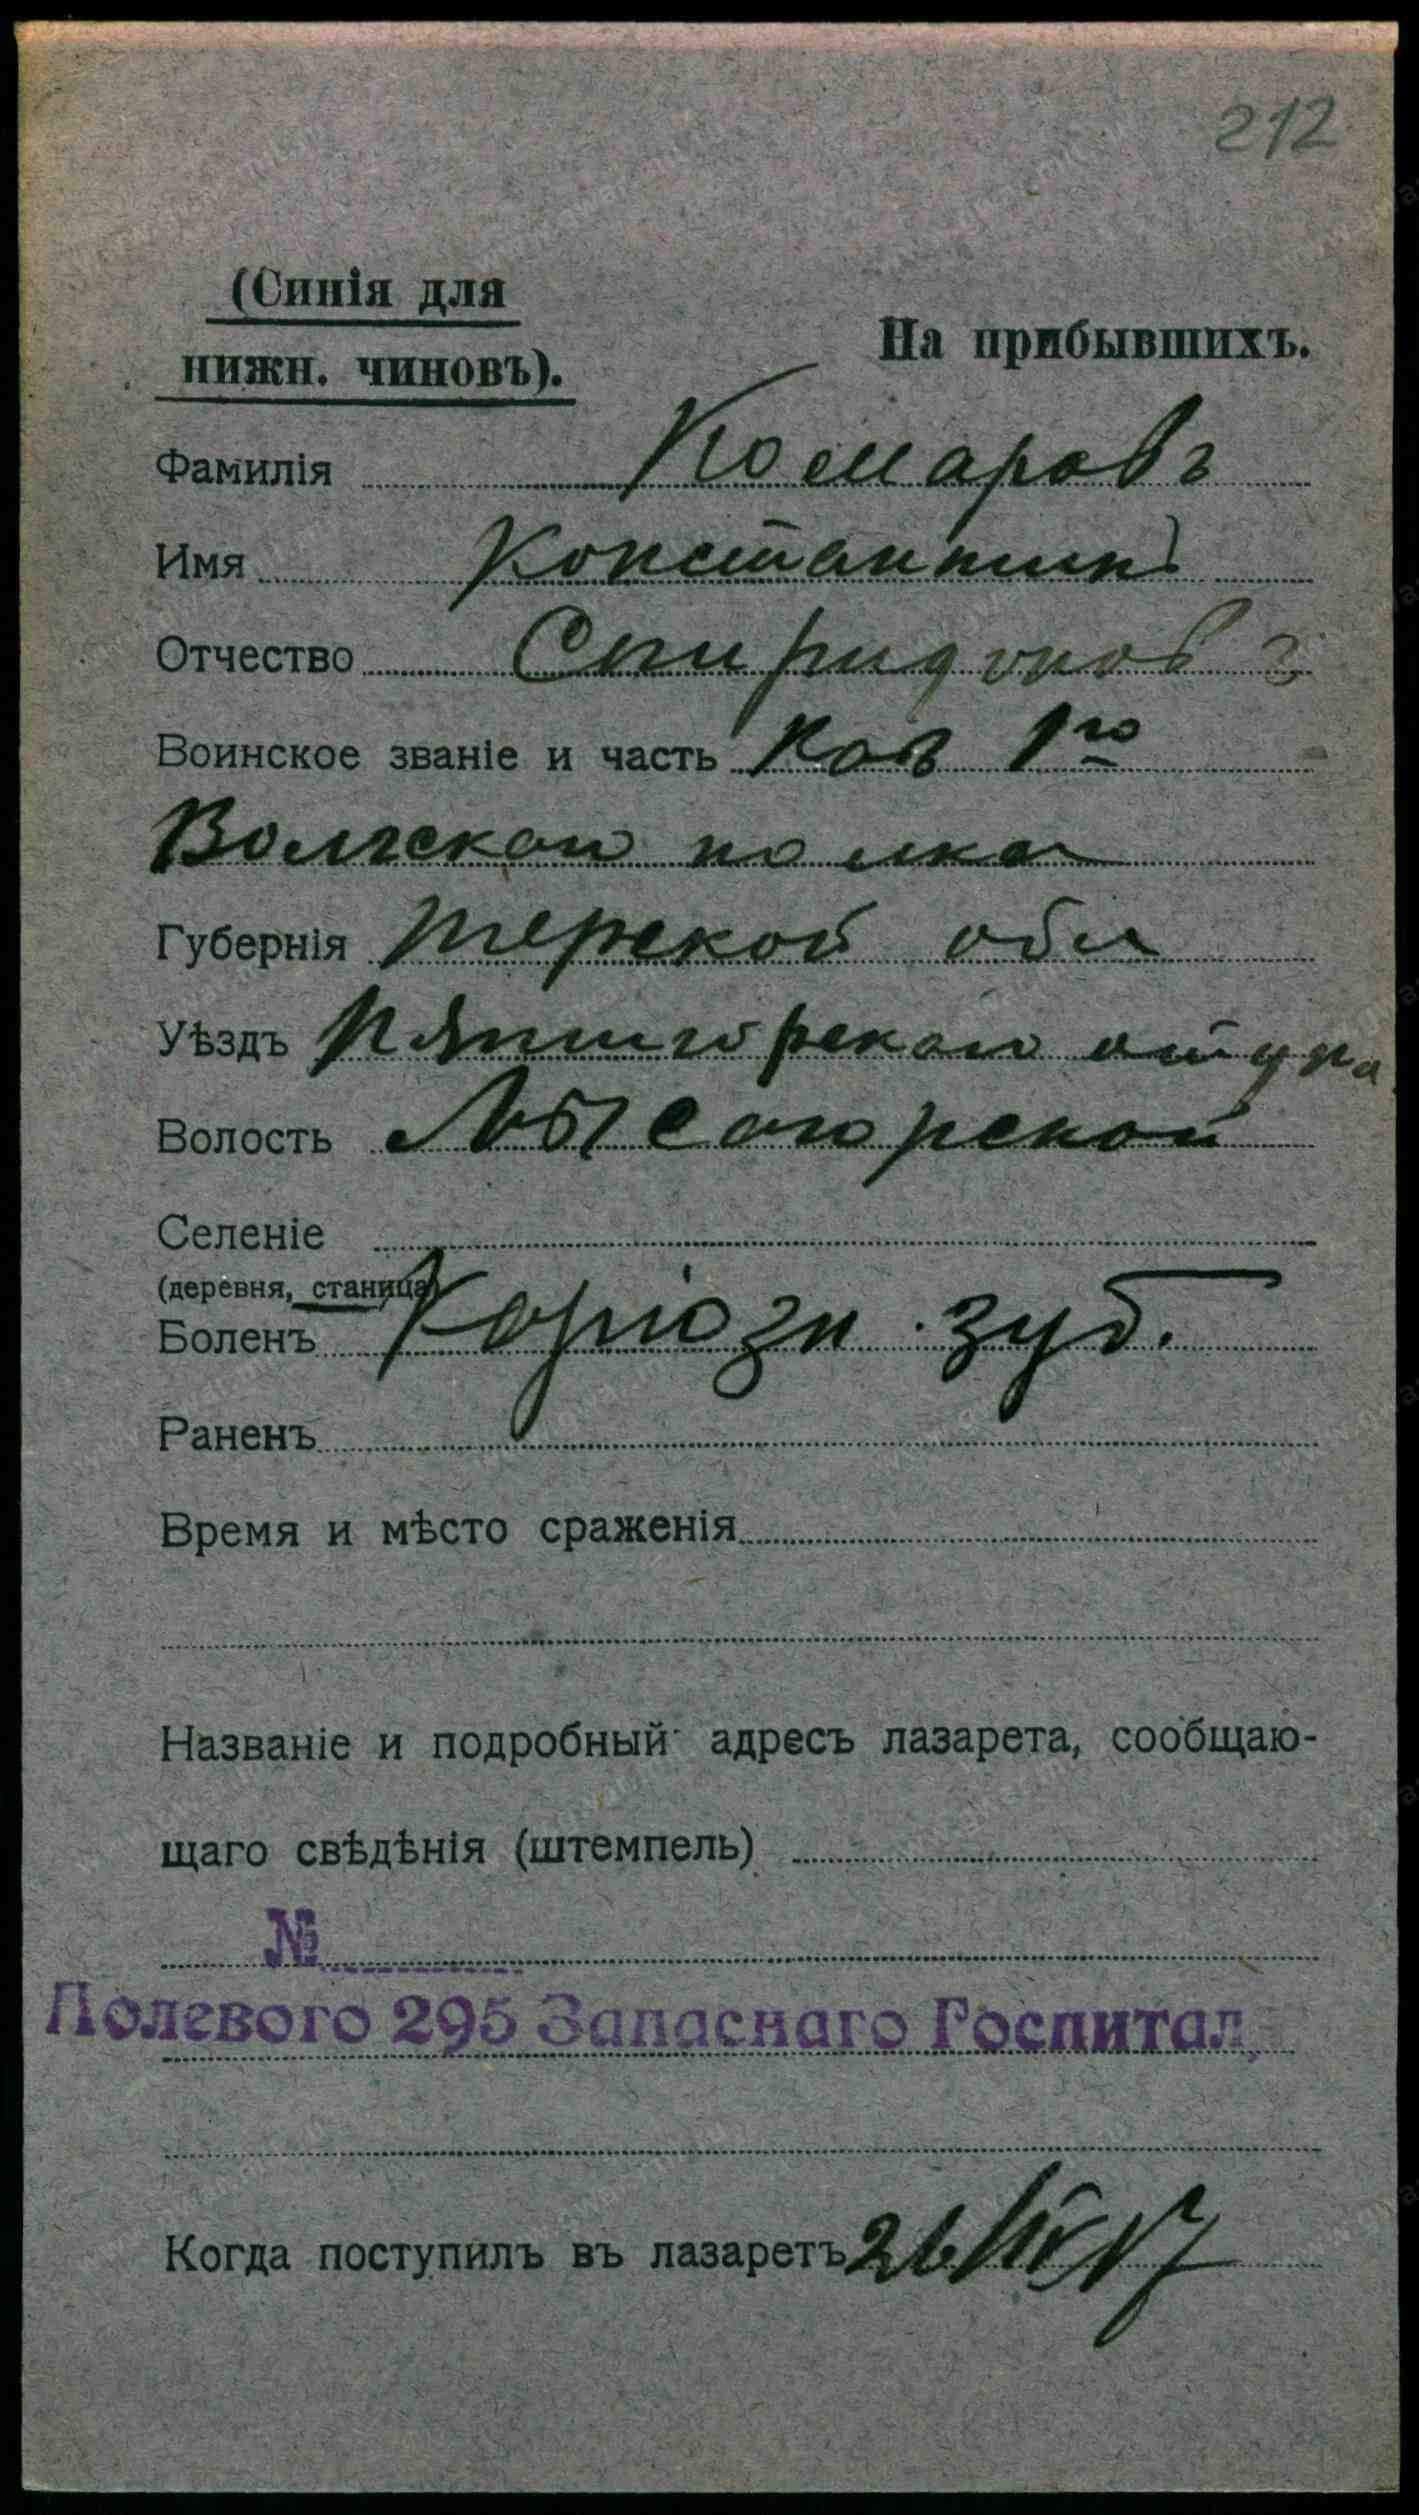 212
(Синія для
нижн. чиновъ).
На прибывшихъ.
Фамилія Комаровъ
Имя Константинъ
Отчество Спиридоновъ
Воинское званіе и часть Каз 1го
Волгскаго полка
Губернія Терской обл
Уѣздъ Пятигорскаго отдѣла
Волость Лысогорской
Селеніе
(деревня, станица)
Боленъ зуб.
Раненъ
Время и мѣсто сраженія
Названіе и подробный адресъ лазарета, сообщаю-
щаго свѣдѣнія (штемпель)
№
Полевого 295 Запаснаго Госпитал
Когда поступилъ въ лазаретъ 26/IV 17